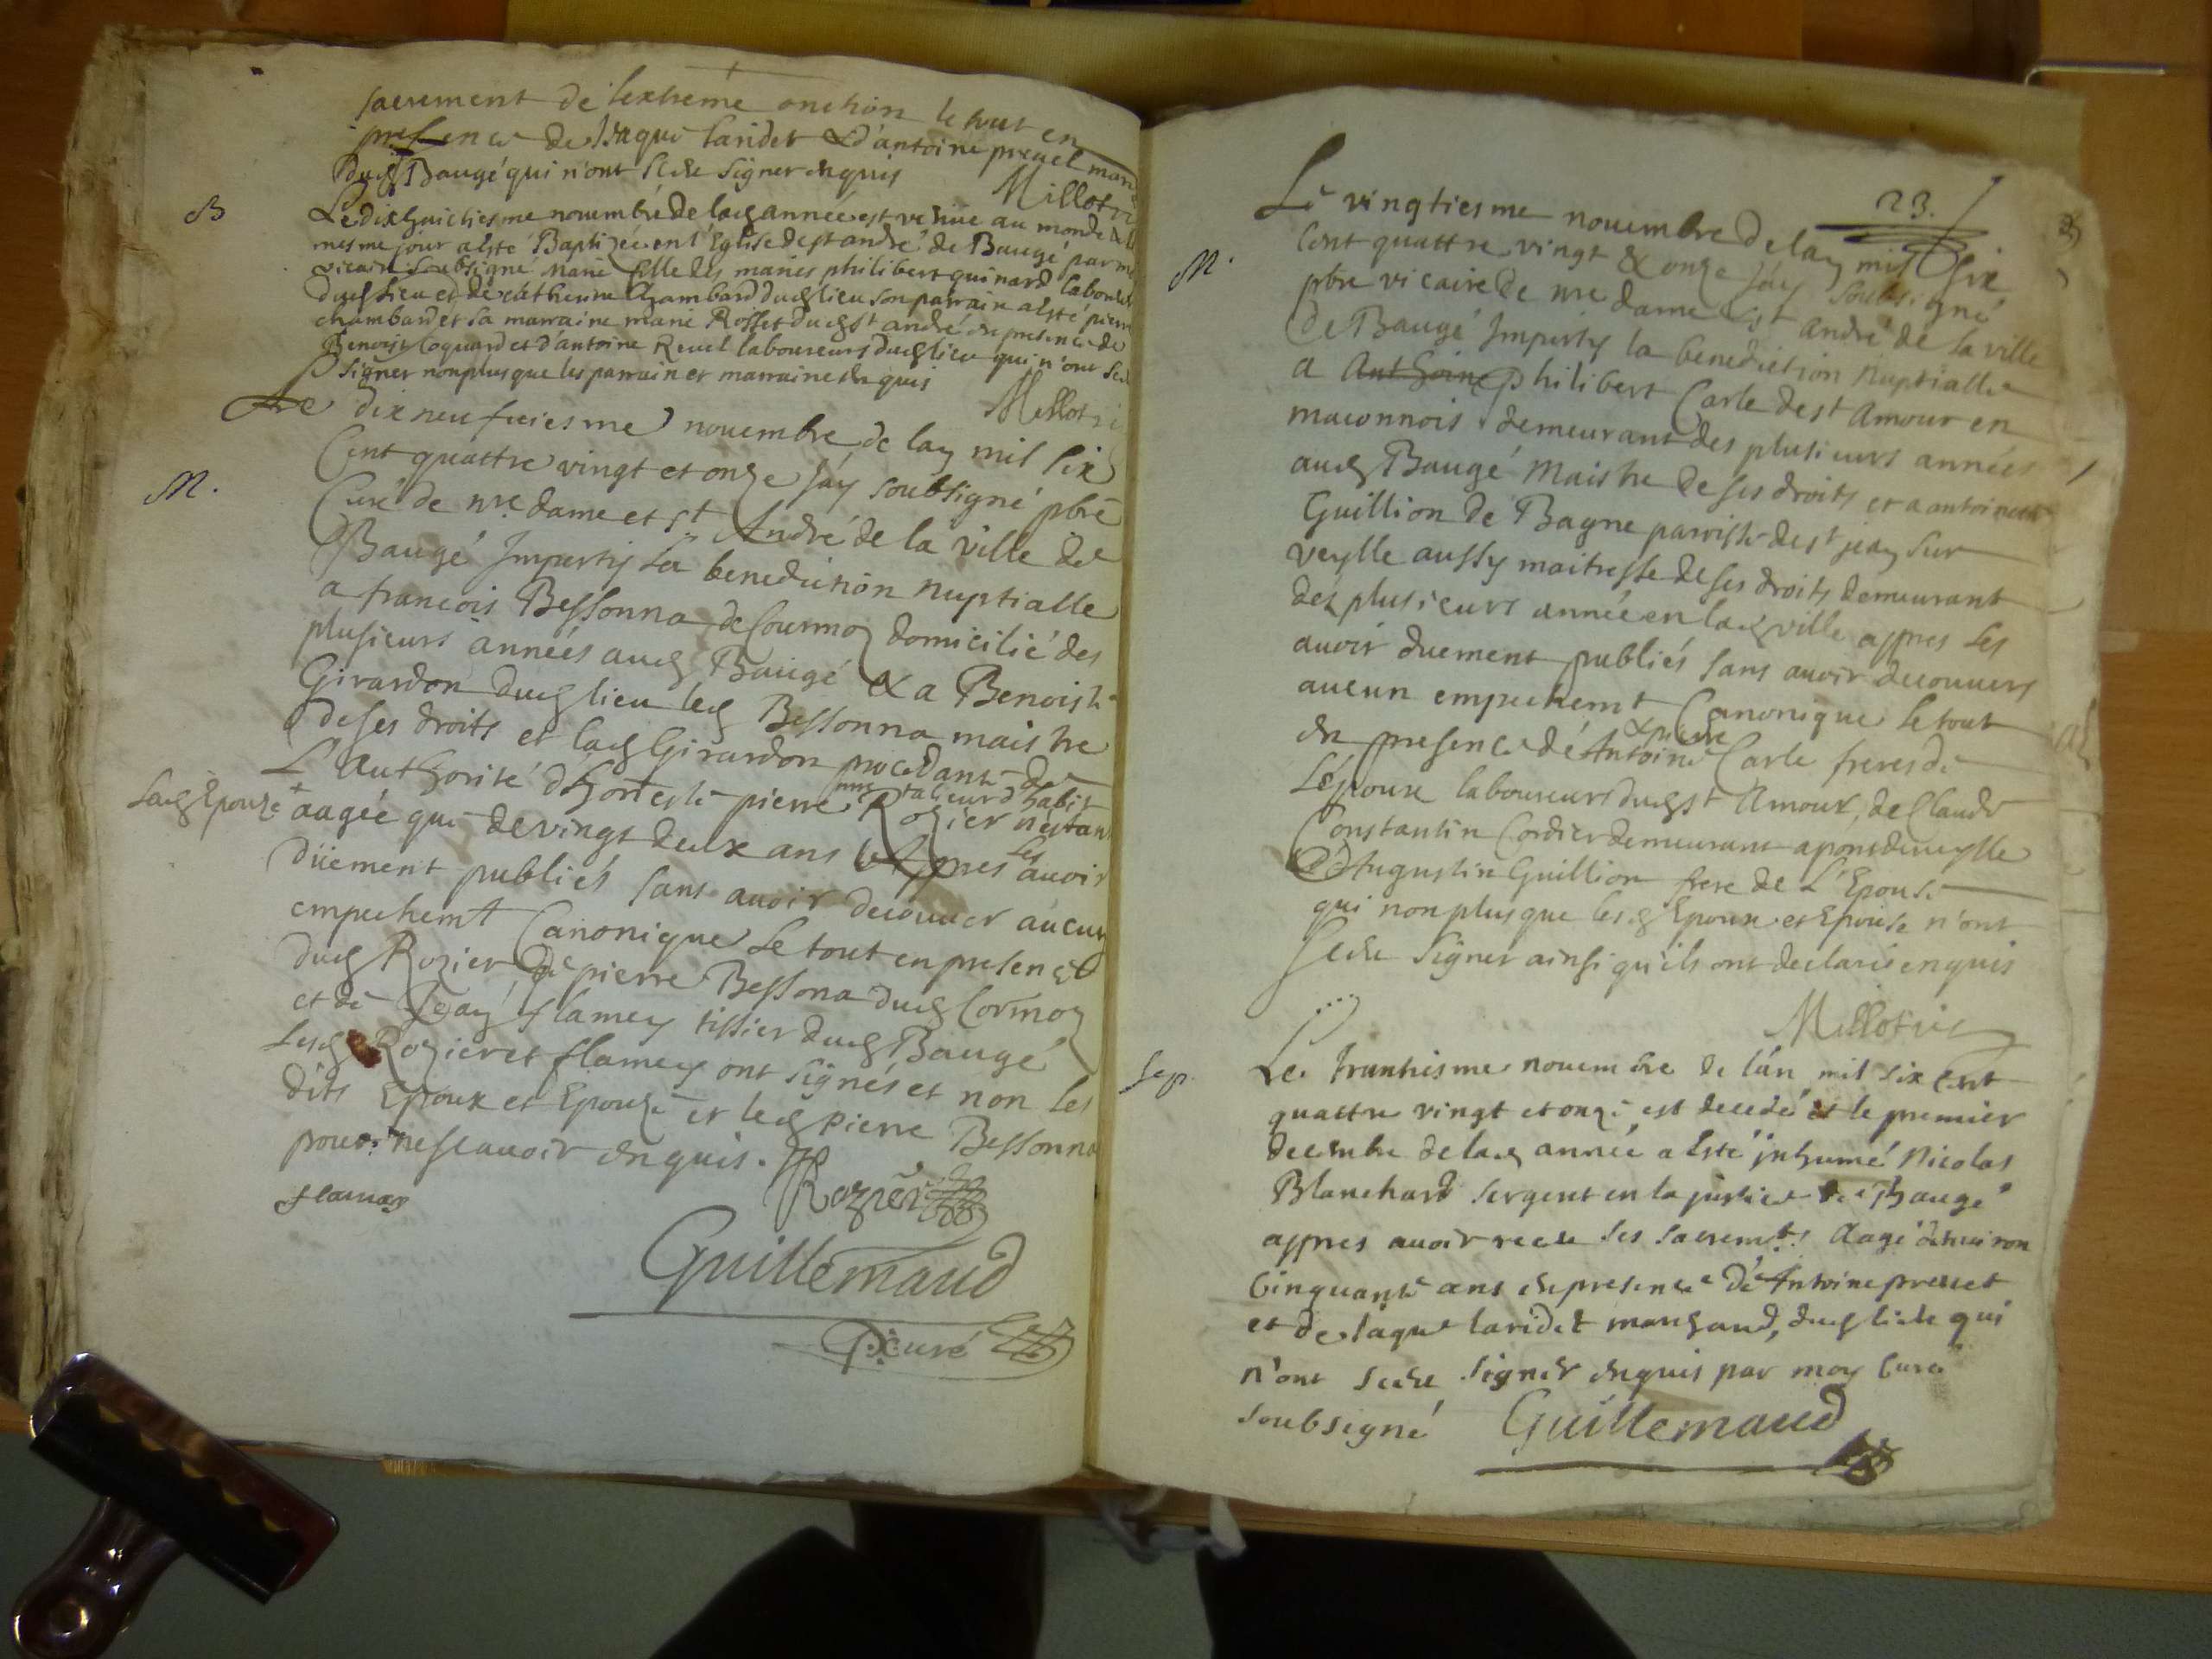 sacrement de l'extreme onction le tout en
presence de Jaque laridet & d'antoine preuel
dud Baugé qui n'ont sceu signer enquis
Millot vic
B
Le dix huictiesme nouembre de lad année est venüe au monde &
mesme jour a esté Baptizée en l'Eglise de st andré de Baugé par
vicaire soubsigné marie fille des mariés philibert guinard laboureur
dud lieu et de catherine Chambard dud lieu son parrain a esté pierre
chambard et sa marraine marie Rosset dud st andré en presence de
Benoist Coquard et d'antoine Reuel laboureurs dud lieu qui n'ont sceu
signer nonplus que les parrain et marraine enquis
Millot vic
M.
Le dix neufuiesme nouembre de lan mil six
Cent quattre vingt et onze J'ay soubsigné pbre
Curé de nre dame et st André de la ville de
Baugé Imperty la benediction nuptialle
a francois Bessonna de Courmoz domicilié des
plusieurs années aud Baugé & a Benoiste
Girardon dud lieu led Bessonna maistre
de ses droits et lad Girardon procedante de
L'Authorité d'honneste pierre Rozier
me tallieur d'habit
n'estant
lad Epouze
aagée que de vingt deux ans Appres les auoir
düement publiés sans auoir decouuer aucun
empechemt Canonique Le tout en presence
dud Rozier de pierre Bessona dud Cormoz
et de Jean flamey tissier dud Baugé
Lesd Rozier et flamey ont signés et non les
dits Epoux et Epouze et led pierre Bessonna
pour ne scauoir enquis.
Rozier
flamey
Guillemaud
curé
23.
M.
Le vingtiesme nouembre de lan mil six
Cent quattre vingt & onze J'ay soubsigné
pbre vicaire de nre dame & st andré de la ville
de Baugé Imperty la benediction nuptialle
a Anthoine philibert Carle de st Amour en
maconnois demeurant des plusieurs années
aud Baugé Maistre de ses droits et a antoinette
Guillion de Bagne parroisse de st jean sur
veylle aussy maitresse de ses droits demeurant
dez plusieurs année en lad ville appres les
auoir duement publiés sans auoir decouuers
aucun empechemt Canonique le tout
en presence de Antoine & pierre Carle freres de
L'epoux laboureurs dud st Amour, de Claude
Constantin Cordier demeurant a pondeueylle
& d'Augustin Guillion frere de L'Epouse
qui nonplus que lesd Epoux et Epouse n'ont
sceu signer ainsi qu'ils ont declaré enquis
Millot vic
Sep.
Le trantiesme nouembre de l'an mil six cent
quattre vingt et onze est decedé et le premier
decembre de lad année a esté inhumé Nicolas
Blanchard sergent en la justice de Baugé
appres auoir receu ses sacremts aagé denuiron
Cinquante ans en presence de Antoine preuet
et de Jaque laridet marchand, dud lieu qui
n'ont sceu signer enquis par moy Curé
soubsigné Guillemaud